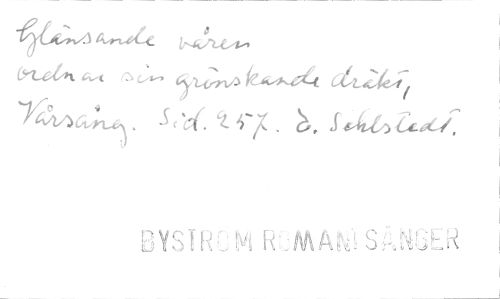 Glänsande våren
ordnar sin grönskande dräkt,
Vårsång. Sid. 257. E. Sehlstedt.
BYSTROM ROMANI SÅNGER